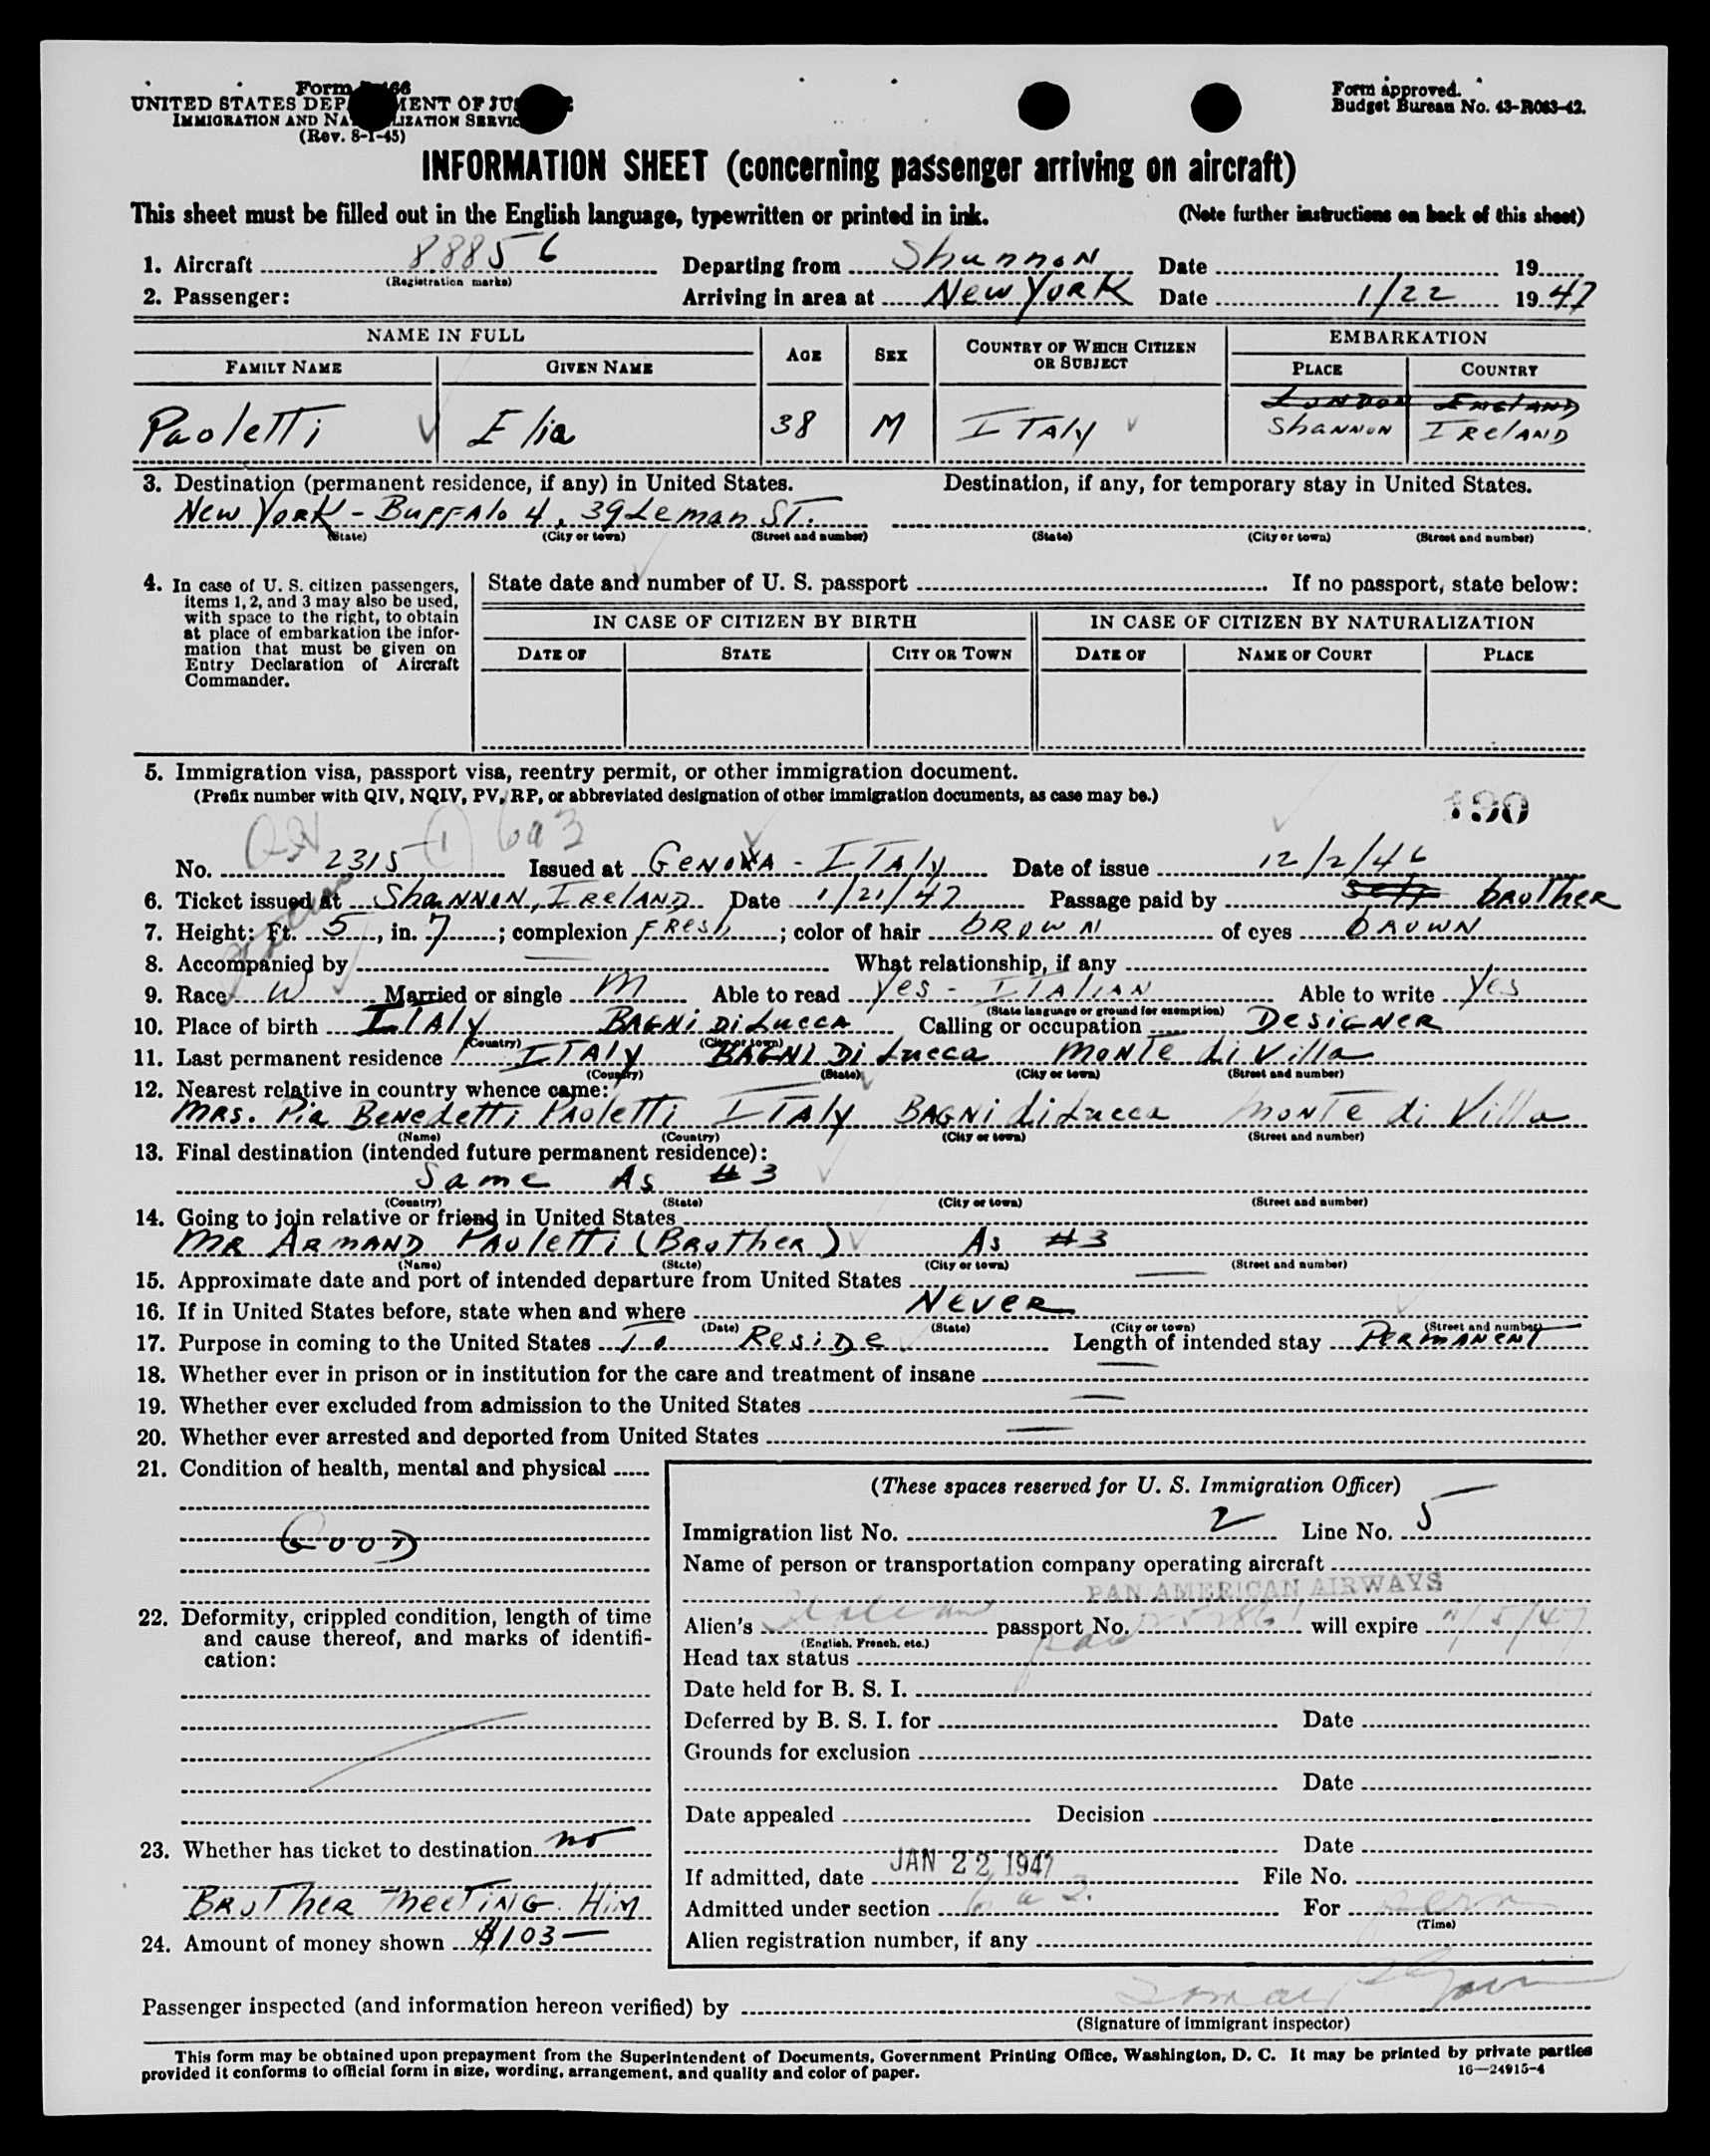 Form
UNITED STATES DEPARTMENT OF JUSTICE
IMMIGRATION AND NATURALIZATION SERVICE
(Rev. 8-1-45)
Form approved.
Budget Bureau No. 43-R083-42.
INFORMATION SHEET (concerning passenger arriving on aircraft)
This sheet must be filled out in the English language, typewritten or printed in ink. (Note further instructions on back of this sheet)
1. Aircraft 88856 Departing from Shannon Date 19
(Registration marks)
2. Passenger: Arriving in area at New York Date 1/22 1947
NAME IN FULL AGE SEX COUNTRY OF WHICH CITIZEN OR SUBJECT EMBARKATION
FAMILY NAME GIVEN NAME PLACE COUNTRY
London England
Paoletti Elia 38 M ITALY Shannon IRELAND
3. Destination (permanent residence, if any) in United States. Destination, if any, for temporary stay in United States.
New York - Buffalo 4, 39 Leman ST.
(State) (City or town) (Street and number) (State) (City or town) (Street and number)
4. In case of U. S. citizen passengers, items 1, 2, and 3 may also be used, with space to the right, to obtain at place of embarkation the information that must be given on Entry Declaration of Aircraft Commander.
State date and number of U. S. passport If no passport, state below:
IN CASE OF CITIZEN BY BIRTH IN CASE OF CITIZEN BY NATURALIZATION
DATE OF STATE CITY OR TOWN DATE OF NAME OF COURT PLACE
5. Immigration visa, passport visa, reentry permit, or other immigration document.
(Prefix number with QIV, NQIV, PV, RP, or abbreviated designation of other immigration documents, as case may be.)
190
6a3
No. 2315 Issued at GENOVA - ITALY Date of issue 12/2/46
6. Ticket issued at Shannon, IRELAND Date 1/21/47 Passage paid by Self brother
7. Height: Ft. 5, in. 7; complexion Fresh; color of hair brown of eyes brown
8. Accompanied by — What relationship, if any
9. Race W Married or single M Able to read Yes - ITALIAN Able to write Yes
(State language or ground for exemption)
10. Place of birth ITALY BAGNI DI LUCCA Calling or occupation DESIGNER
(Country) (City or town)
11. Last permanent residence ITALY BAGNI DI Lucca MONTE di Villa
(Country) (State) (City or town) (Street and number)
12. Nearest relative in country whence came:
MRS. Pia Benedetti Paoletti ITALY BAGNI di Lucca MONTE di Villa
(Name) (Country) (City or town) (Street and number)
13. Final destination (intended future permanent residence):
Same As #3
(Country) (State) (City or town) (Street and number)
14. Going to join relative or friend in United States
MR ARMAND PAOletti (Brother) As #3
(Name) (State) (City or town) (Street and number)
15. Approximate date and port of intended departure from United States —
16. If in United States before, state when and where NEVER
(Date) (State) (City or town) (Street and number)
17. Purpose in coming to the United States To Reside Length of intended stay PERMANENT
18. Whether ever in prison or in institution for the care and treatment of insane —
19. Whether ever excluded from admission to the United States —
20. Whether ever arrested and deported from United States —
21. Condition of health, mental and physical
Good
22. Deformity, crippled condition, length of time and cause thereof, and marks of identification:
23. Whether has ticket to destination no
BROTHER MEETING HIM
24. Amount of money shown $103—
(These spaces reserved for U. S. Immigration Officer)
Immigration list No. 2 Line No. 5
Name of person or transportation company operating aircraft
PAN AMERICAN AIRWAYS
Alien's Italian passport No. will expire /5/47
(English, French, etc.)
Head tax status paid
Date held for B. S. I.
Deferred by B. S. I. for Date
Grounds for exclusion
Date
Date appealed Decision
Date
If admitted, date JAN 22 1947 File No.
Admitted under section 6a3. For perm
(Time)
Alien registration number, if any
Passenger inspected (and information hereon verified) by
(Signature of immigrant inspector)
This form may be obtained upon prepayment from the Superintendent of Documents, Government Printing Office, Washington, D. C. It may be printed by private parties
provided it conforms to official form in size, wording, arrangement, and quality and color of paper.
16—24915-4